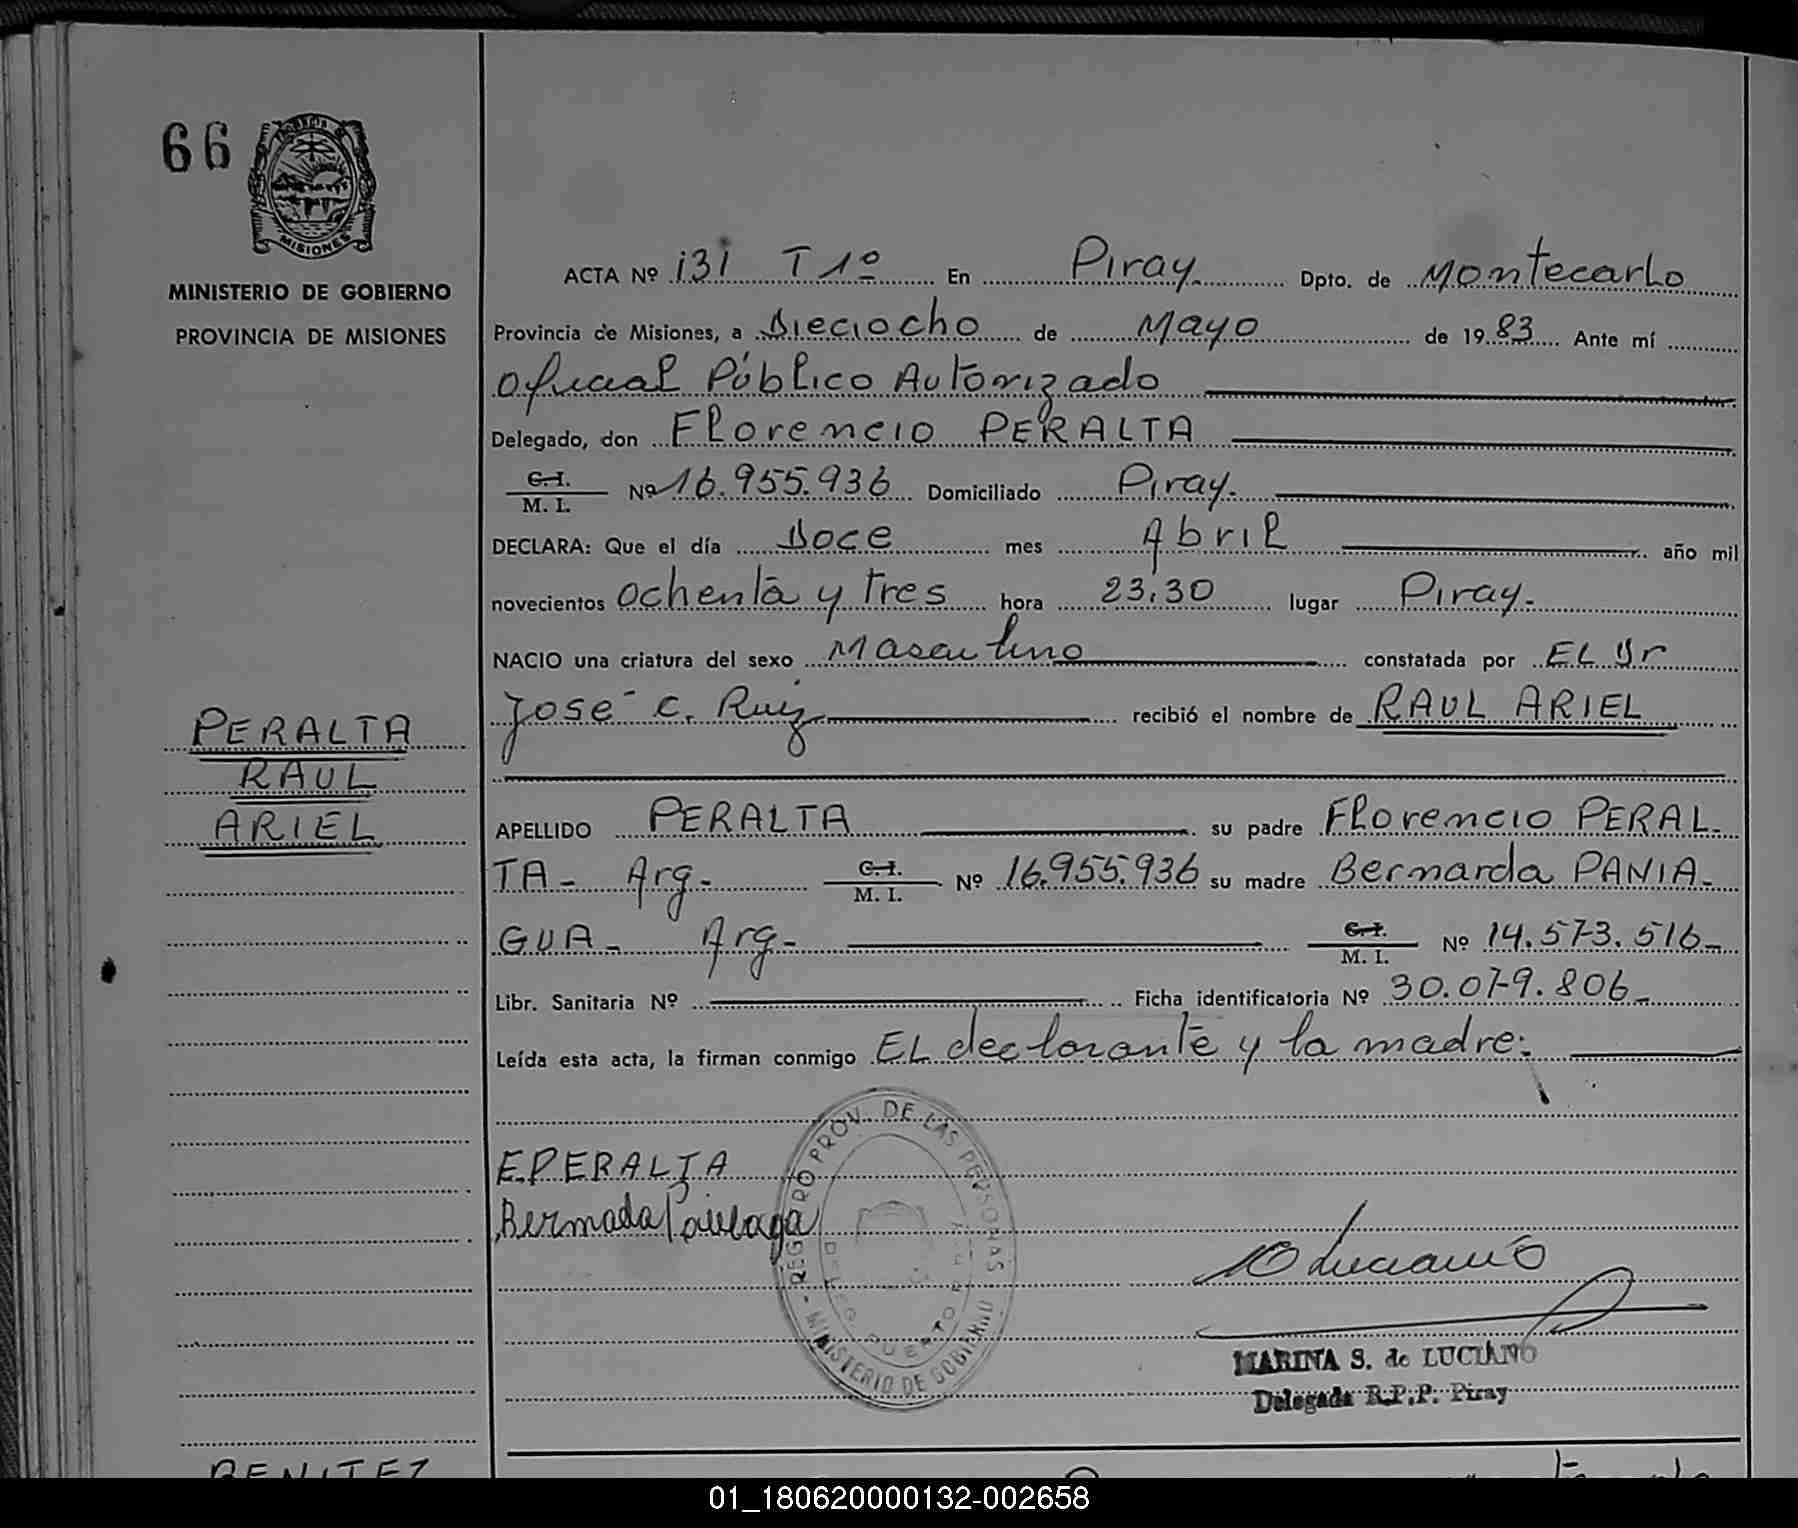 66
MISIONES
MINISTERIO DE GOBIERNO
PROVINCIA DE MISIONES
PERALTA
RAUL
ARIEL
ACTA Nº 131 T 1º En Piray. Dpto. de Montecarlo
Provincia de Misiones, a Dieciocho de Mayo de 1983 Ante mí
Oficial Público Autorizado
Delegado, don Florencio PERALTA
C. I.
M. I. Nº 16.955.936 Domiciliado Piray.
DECLARA: Que el día Doce mes Abril año mil
novecientos ochenta y tres hora 23:30 lugar Piray-
NACIO una criatura del sexo Masculino constatada por El Dr
José C. Ruiz recibió el nombre de RAUL ARIEL
APELLIDO PERALTA su padre Florencio PERAL-
TA- Arg- C. I. M. I. Nº 16.955.936 su madre Bernarda PANIA-
GUA- Arg- C. I. M. I. Nº 14.573.516-
Libr. Sanitaria Nº Ficha identificatoria Nº 30.079.806-
Leída esta acta, la firman conmigo El declarante y la madre:
REGISTRO PROV. DE LAS PERSONAS - MINISTERIO DE GOBIERNO
DELEG. PUERTO
PERALTA
Bermada
Luciano
MARINA S. de LUCIANO
Delegada R.P.P. Piray
BENITEZ
01_180620000132-002658